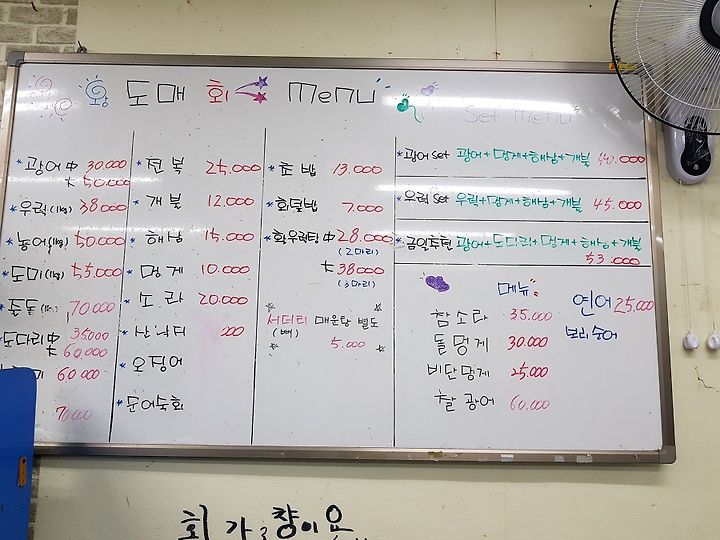 도매 회 Menu
Set Menu
*광어 中 30.000
大 50.000
*우럭(1kg) 38.000
*농어(1kg) 50.000
*도미(1kg) 55.000
70.000
도다리 中 35.000
大 60.000
60.000
70.000
*전복 25.000
*개불 12.000
*해삼 15.000
*멍게 10.000
*소라 20.000
*산낙지
*오징어
*문어숙회
*초밥 13.000
*회덮밥 7.000
*회우럭탕 中 28.000
(2마리)
大 38.000
(3마리)
서더리 매운탕 별도
(뼈) 5.000
*광어 Set 광어+멍게+해삼+개불 40.000
*우럭 Set 우럭+멍게+해삼+개불 45.000
*금일추천 광어+도다리+멍게+해삼+개불
53.000
메뉴
참소라 35.000
돌멍게 30.000
비단멍게 25.000
찰광어 60.000
연어 25.000
보리숭어
회 가 참이요